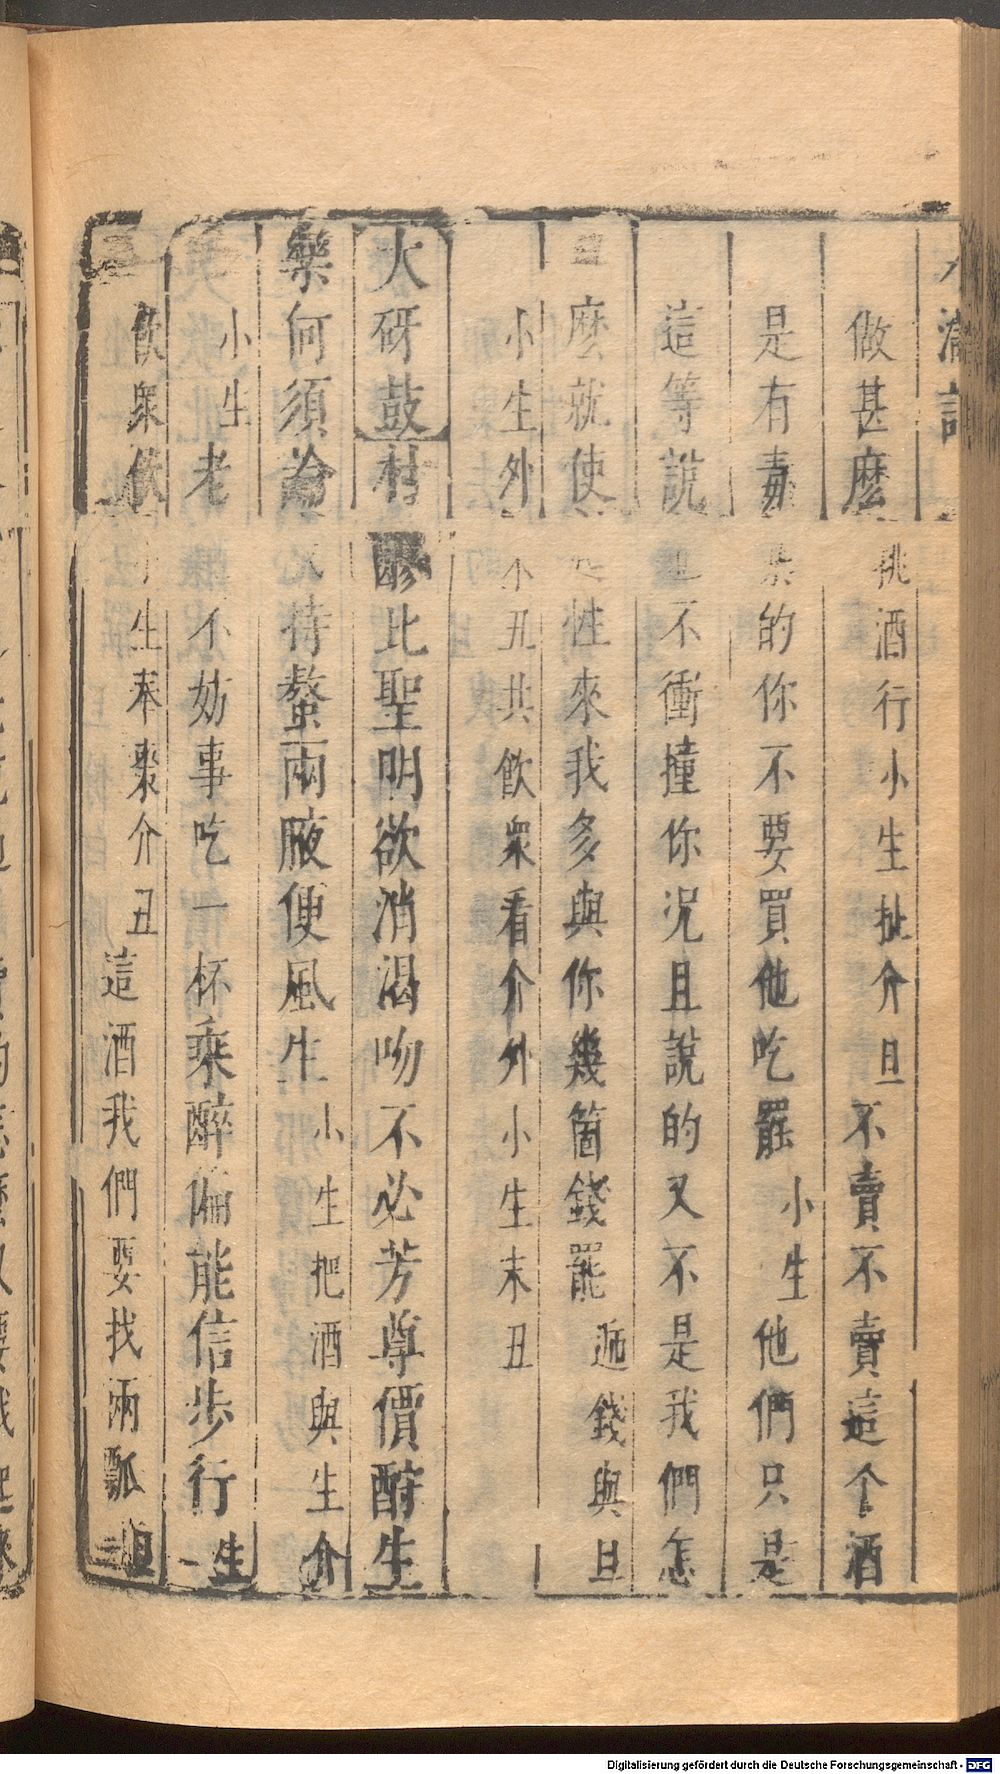 水滸記
做甚麽挑酒行小生扯介旦不賣不賣這个酒
是有毒藥的你不要買他吃罷小生他們只是
這等說也不衝撞你况且說的又不是我們怎
麽就使起性來我多與你幾箇錢罷遞錢與旦
小生外末丑共飲衆看介外小生末丑
大砑鼓村醪比聖明欲消渴吻不必芳尊價酧生
欒何須論又待螯兩腋便風生小生把酒與生介
小生老不妨事吃一杯乘醉偏能信步行生
飲衆飲小生奉衆介丑這酒我們要找兩瓢旦
Digitalisierung gefördert durch die Deutsche Forschungsgemeinschaft - DFG